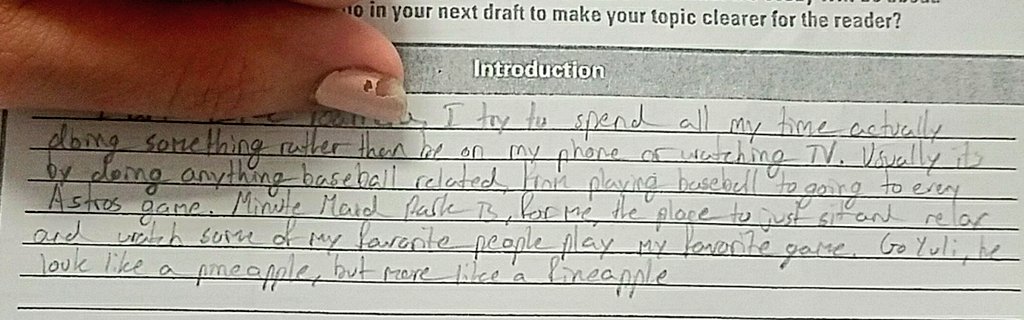 in your next draft to make your topic clearer for the reader?
Introduction
I try to spend all my time actually
doing something rather then be on my phone or watching TV. Usually its
by doing anything baseball related, from playing baseball to going to every
Astros game. Minute Maid Park is, for me, the place to just sit and relax
and watch some of my favorite people play my favorite game. Go Yuli, he
look like a pineapple, but more like a fineapple